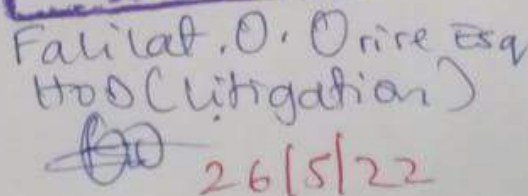 Falilat. O. Orire Esq
HOD (Litigation)
26/5/22